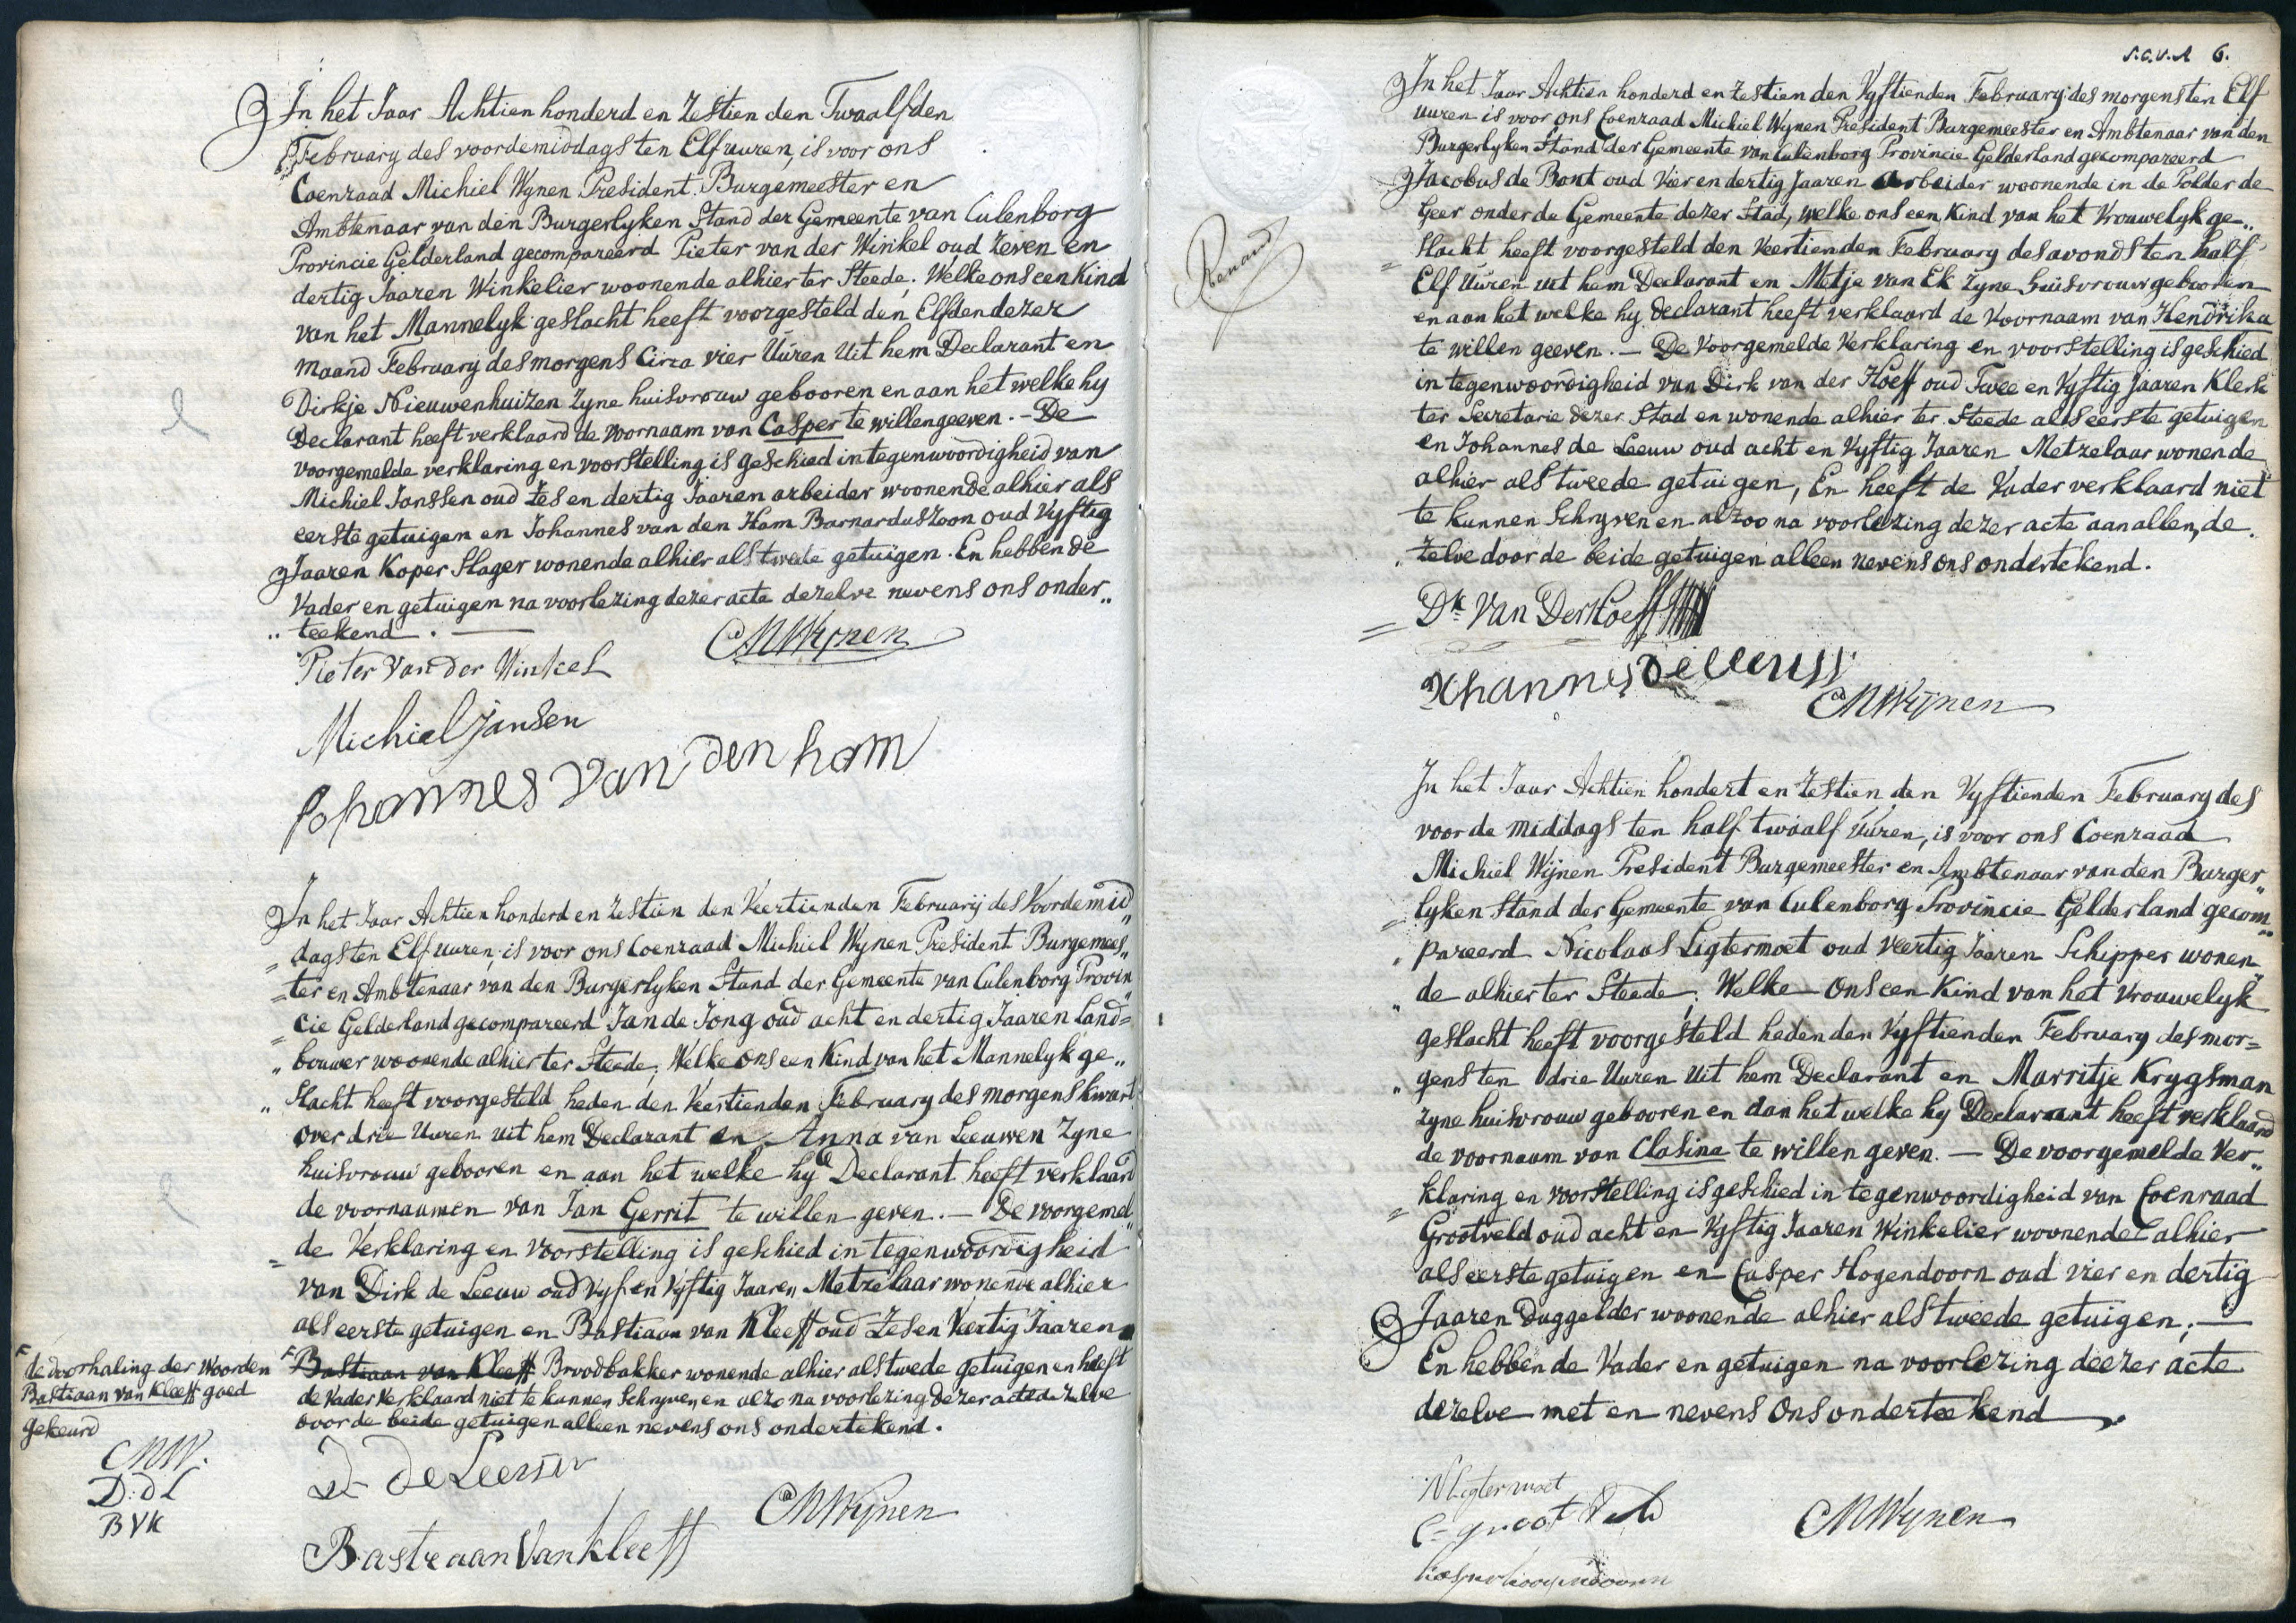 In het Jaar Achtien honderd en Zestien den Twaalfden
February des voordemiddags ten Elf uuren, is voor ons
Coenraad Michiel Wynen President Burgemeester en
Ambtenaar van den Burgerlyken Stand der Gemeente van Culenborg
Provincie Gelderland gecompareerd Pieter van der Winkel oud Zeven en
dertig Jaaren Winkelier woonende alhier ter Steede; Welke ons een Kind
van het Mannelyk geslacht heeft voorgesteld den Elfden dezer
maand February des morgens Circa vier Uuren Uit hem Declarant en
Dirkje Nieuwenhuizen Zyne huisvrouw gebooren en aan het welke hy
Declarant heeft verklaard de voornaam van Casper te willen geeven. - De
voorgemelde verklaring en voorstelling is geschied in tegenwoordigheid van
Michiel Janssen oud Zes en dertig Jaaren arbeider woonende alhier als
eerste getuigen en Johannes van den Ham Barnardus Zoon oud Vyftig
Jaaren Koper Slager wonende alhier als twede getuigen. En hebben de
Vader en getuigen na voorlezing dezer acte dezelve nevens ons onder„
„ teekend. —
CMWynen
Pieter van der Winkel
Michiel Jansen
Johannes van den ham
In het Jaar Achtien honderd en Zestien den Veertienden Februarij des Voordemid„
= dags ten Elf uuren, is voor ons Coenraad Michiel Wynen President Burgemees„
= ter en Ambtenaar van den Burgerlyken Stand der Gemeente van Culenborg Provin„
= cie Gelderland gecompareerd Jan de Jong oud acht en dertig Jaaren Land=
„ bouwer woonende alhier ter Steede; Welke ons een Kind van het Mannelyk ge„
„ slacht heeft voorgesteld heden den Veertienden February des morgens kwart
over drie Uuren uit hem Declarant en Anna van Leeuwen Zyne
huisvrouw gebooren en aan het welke hy Declarant heeft verklaard
de voornaamen van Jan Gerrit te willen geven. — De voorgemel„
= de Verklaring en Voorstelling is geschied in tegenwoordigheid
van Dirk de Leeuw oud Vyf en Vyftig Jaaren Metzelaar wonende alhier
als eerste getuigen en Bastiaan van Kleeff oud Zes en Veertig Jaaren
F Bastiaan van Kleeff Broodbakker wonende alhier als twede getuigen en heeft
de Vader verklaard niet te kunnen Schryven en alzo na voorlezing dezer acte dezelve
door de beide getuigen alleen nevens ons ondertekend.
F de doorhaling der woorden
Bastiaan van Kleeff goed
gekeurd
CMW.
D: d L
BVK
D de Leeuw
CMWijnen
Bastiaan Van Kleeff
6.
In het Jaar Achtien honderd en Zestien den Vyftienden February des morgens ten Elf
uuren is voor ons Coenraad Michiel Wynen President Burgemeester en Ambtenaar van den
Burgerlyken Stand der Gemeente van Culenborg Provincie Gelderland gecompareerd
Jacobus de Bont oud Vier en dertig Jaaren Arbeider woonende in de Polder de
Geer onder de Gemeente dezer Stad, welke ons een Kind van het Vrouwelyk ge„
= slacht heeft voorgesteld den Veertienden February des avonds ten half
Elf Uuren uit hem Declarant en Metje van Ek Zyne huisvrouw gebooren
en aan het welke hy declarant heeft verklaard de Voornaam van Hendrika
te willen geeven. — De Voorgemelde Verklaring en voorstelling is geschied
in tegenwoordigheid van Dirk van der Hoeff oud Twee en Vyftig Jaaren Klerk
ter Secretarie dezer Stad en wonende alhier ter Steede als eerste getuigen
en Johannes de Leeuw oud acht en Vyftig Jaaren Metzelaar wonende
alhier als tweede getuigen, En heeft de Vader verklaard niet
te kunnen Schryven en alzoo na voorlezing dezer acte aan allen, de
„ zelve door de beide getuigen alleen nevens ons ondertekend.
Renard
= Dk Van Der Hoeff
Johannes de Leeuw
CMWijnen
In het Jaar Achtien hondert en Zestien den Vyftienden February des
voorde middags ten half twaalf Uuren, is voor ons Coenraad
Michiel Wijnen President Burgemeester en Ambtenaar van den Burger„
= lyken Stand der Gemeente van Culenborg Provincie Gelderland gecom„
„ pareerd Nicolaas Ligtermoet oud Veertig Jaaren Schipper wonen„
„ de alhier ter Steede; Welke Ons een Kind van het Vrouwelyk
geslacht heeft voorgesteld heden den Vyftienden February des mor=
„ gens ten drie Uuren Uit hem Declarant en Marritje Krygsman
zyne huisvrouw gebooren en aan het welke hy Declarant heeft verklaard
de voornaam van Clasina te willen geven. — De voorgemelde Ver„
= klaring en voorstelling is geschied in tegenwoordigheid van Coenraad
Grootveld oud acht en Vyftig Jaaren Winkelier woonende alhier
als eerste getuigen en Casper Hogendoorn oud vier en dertig
Jaaren Daggelder woonende alhier als tweede getuigen; —
En hebben de Vader en getuigen na voorlezing deezer acte
dezelve met en nevens Ons onderteekend.
N Ligtermoet
C= groot Veld
CMWynen
Casper hoogendoorn